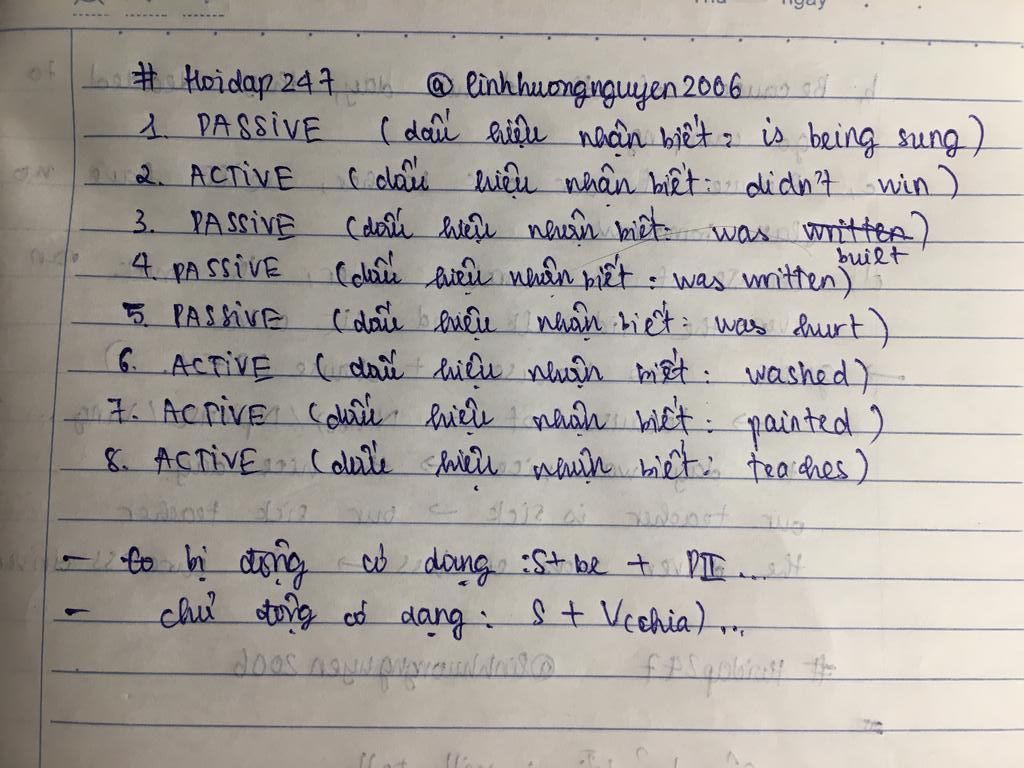 # Hoidap247 @linhhuongnguyen2006
1. PASSIVE (dấu hiệu nhận biết: is being sung)
2. ACTIVE (dấu hiệu nhận biết: didn't win)
3. PASSIVE (dấu hiệu nhận biết: was written)
built
4. PASSIVE (dấu hiệu nhận biết: was written)
5. PASSIVE (dấu hiệu nhận biết: was hurt)
6. ACTIVE (dấu hiệu nhận biết: washed)
7. ACTIVE (dấu hiệu nhận biết: painted)
8. ACTIVE (dấu hiệu nhận biết: teaches)
- bị động có dạng: S + be + PII...
- chủ động có dạng: S + V(chia)...